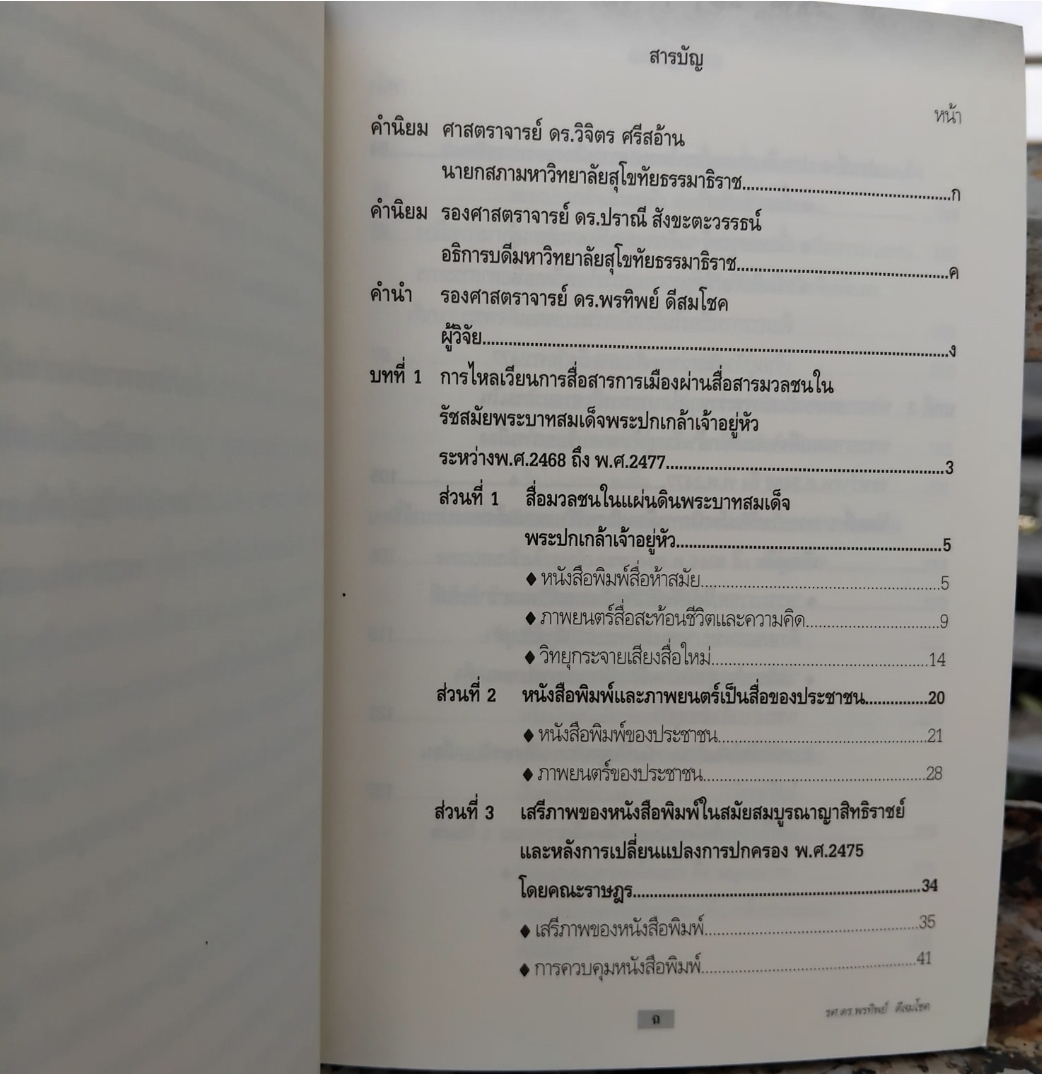 สารบัญ
หน้า
คำนิยม ศาสตราจารย์ ดร.วิจิตร ศรีสอ้าน
นายกสภามหาวิทยาลัยสุโขทัยธรรมาธิราช....................................................ก
คำนิยม รองศาสตราจารย์ ดร.ปราณี สังขะตะวรรธน์
อธิการบดีมหาวิทยาลัยสุโขทัยธรรมาธิราช....................................................ค
คำนำ รองศาสตราจารย์ ดร.พรทิพย์ ดีสมโชค
ผู้วิจัย....................................................ง
บทที่ 1 การไหลเวียนการสื่อสารการเมืองผ่านสื่อสารมวลชนใน
รัชสมัยพระบาทสมเด็จพระปกเกล้าเจ้าอยู่หัว
ระหว่างพ.ศ.2468 ถึง พ.ศ.2477....................................................3
ส่วนที่ 1 สื่อมวลชนในแผ่นดินพระบาทสมเด็จ
พระปกเกล้าเจ้าอยู่หัว....................................................5
♦ หนังสือพิมพ์สื่อห้าสมัย....................................................5
♦ ภาพยนตร์สื่อสะท้อนชีวิตและความคิด..............................9
♦ วิทยุกระจายเสียงสื่อใหม่..............................................14
ส่วนที่ 2 หนังสือพิมพ์และภาพยนตร์เป็นสื่อของประชาชน...............20
♦ หนังสือพิมพ์ของประชาชน..............................................21
♦ ภาพยนตร์ของประชาชน..............................................28
ส่วนที่ 3 เสรีภาพของหนังสือพิมพ์ในสมัยสมบูรณาญาสิทธิราชย์
และหลังการเปลี่ยนแปลงการปกครอง พ.ศ.2475
โดยคณะราษฎร....................................................34
♦ เสรีภาพของหนังสือพิมพ์..............................................35
♦ การควบคุมหนังสือพิมพ์..............................................41
ฉ
รศ.ดร.พรทิพย์ ดีสมโชค